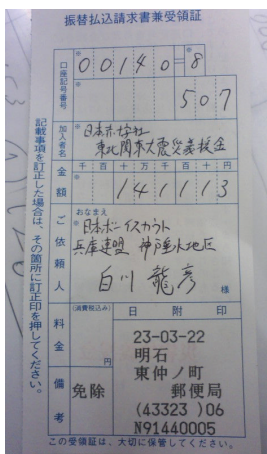 振替払込請求書兼受領証
口座記号番号
00140=8
507
加入者名
日本赤十字社
東北関東大震災義援金
金額
千百十万千百十円
141113
ご依頼人
おなまえ
日本ボーイスカウト
兵庫連盟 神戸垂水地区
白川 龍彦 様
料金
(消費税込み)
円
備考
免除
日附印
23-03-22
明石
東仲ノ町
郵便局
(43323 )06
N91440005
記載事項を訂正した場合は、その箇所に訂正印を押してください。
この受領証は、大切に保管してください。